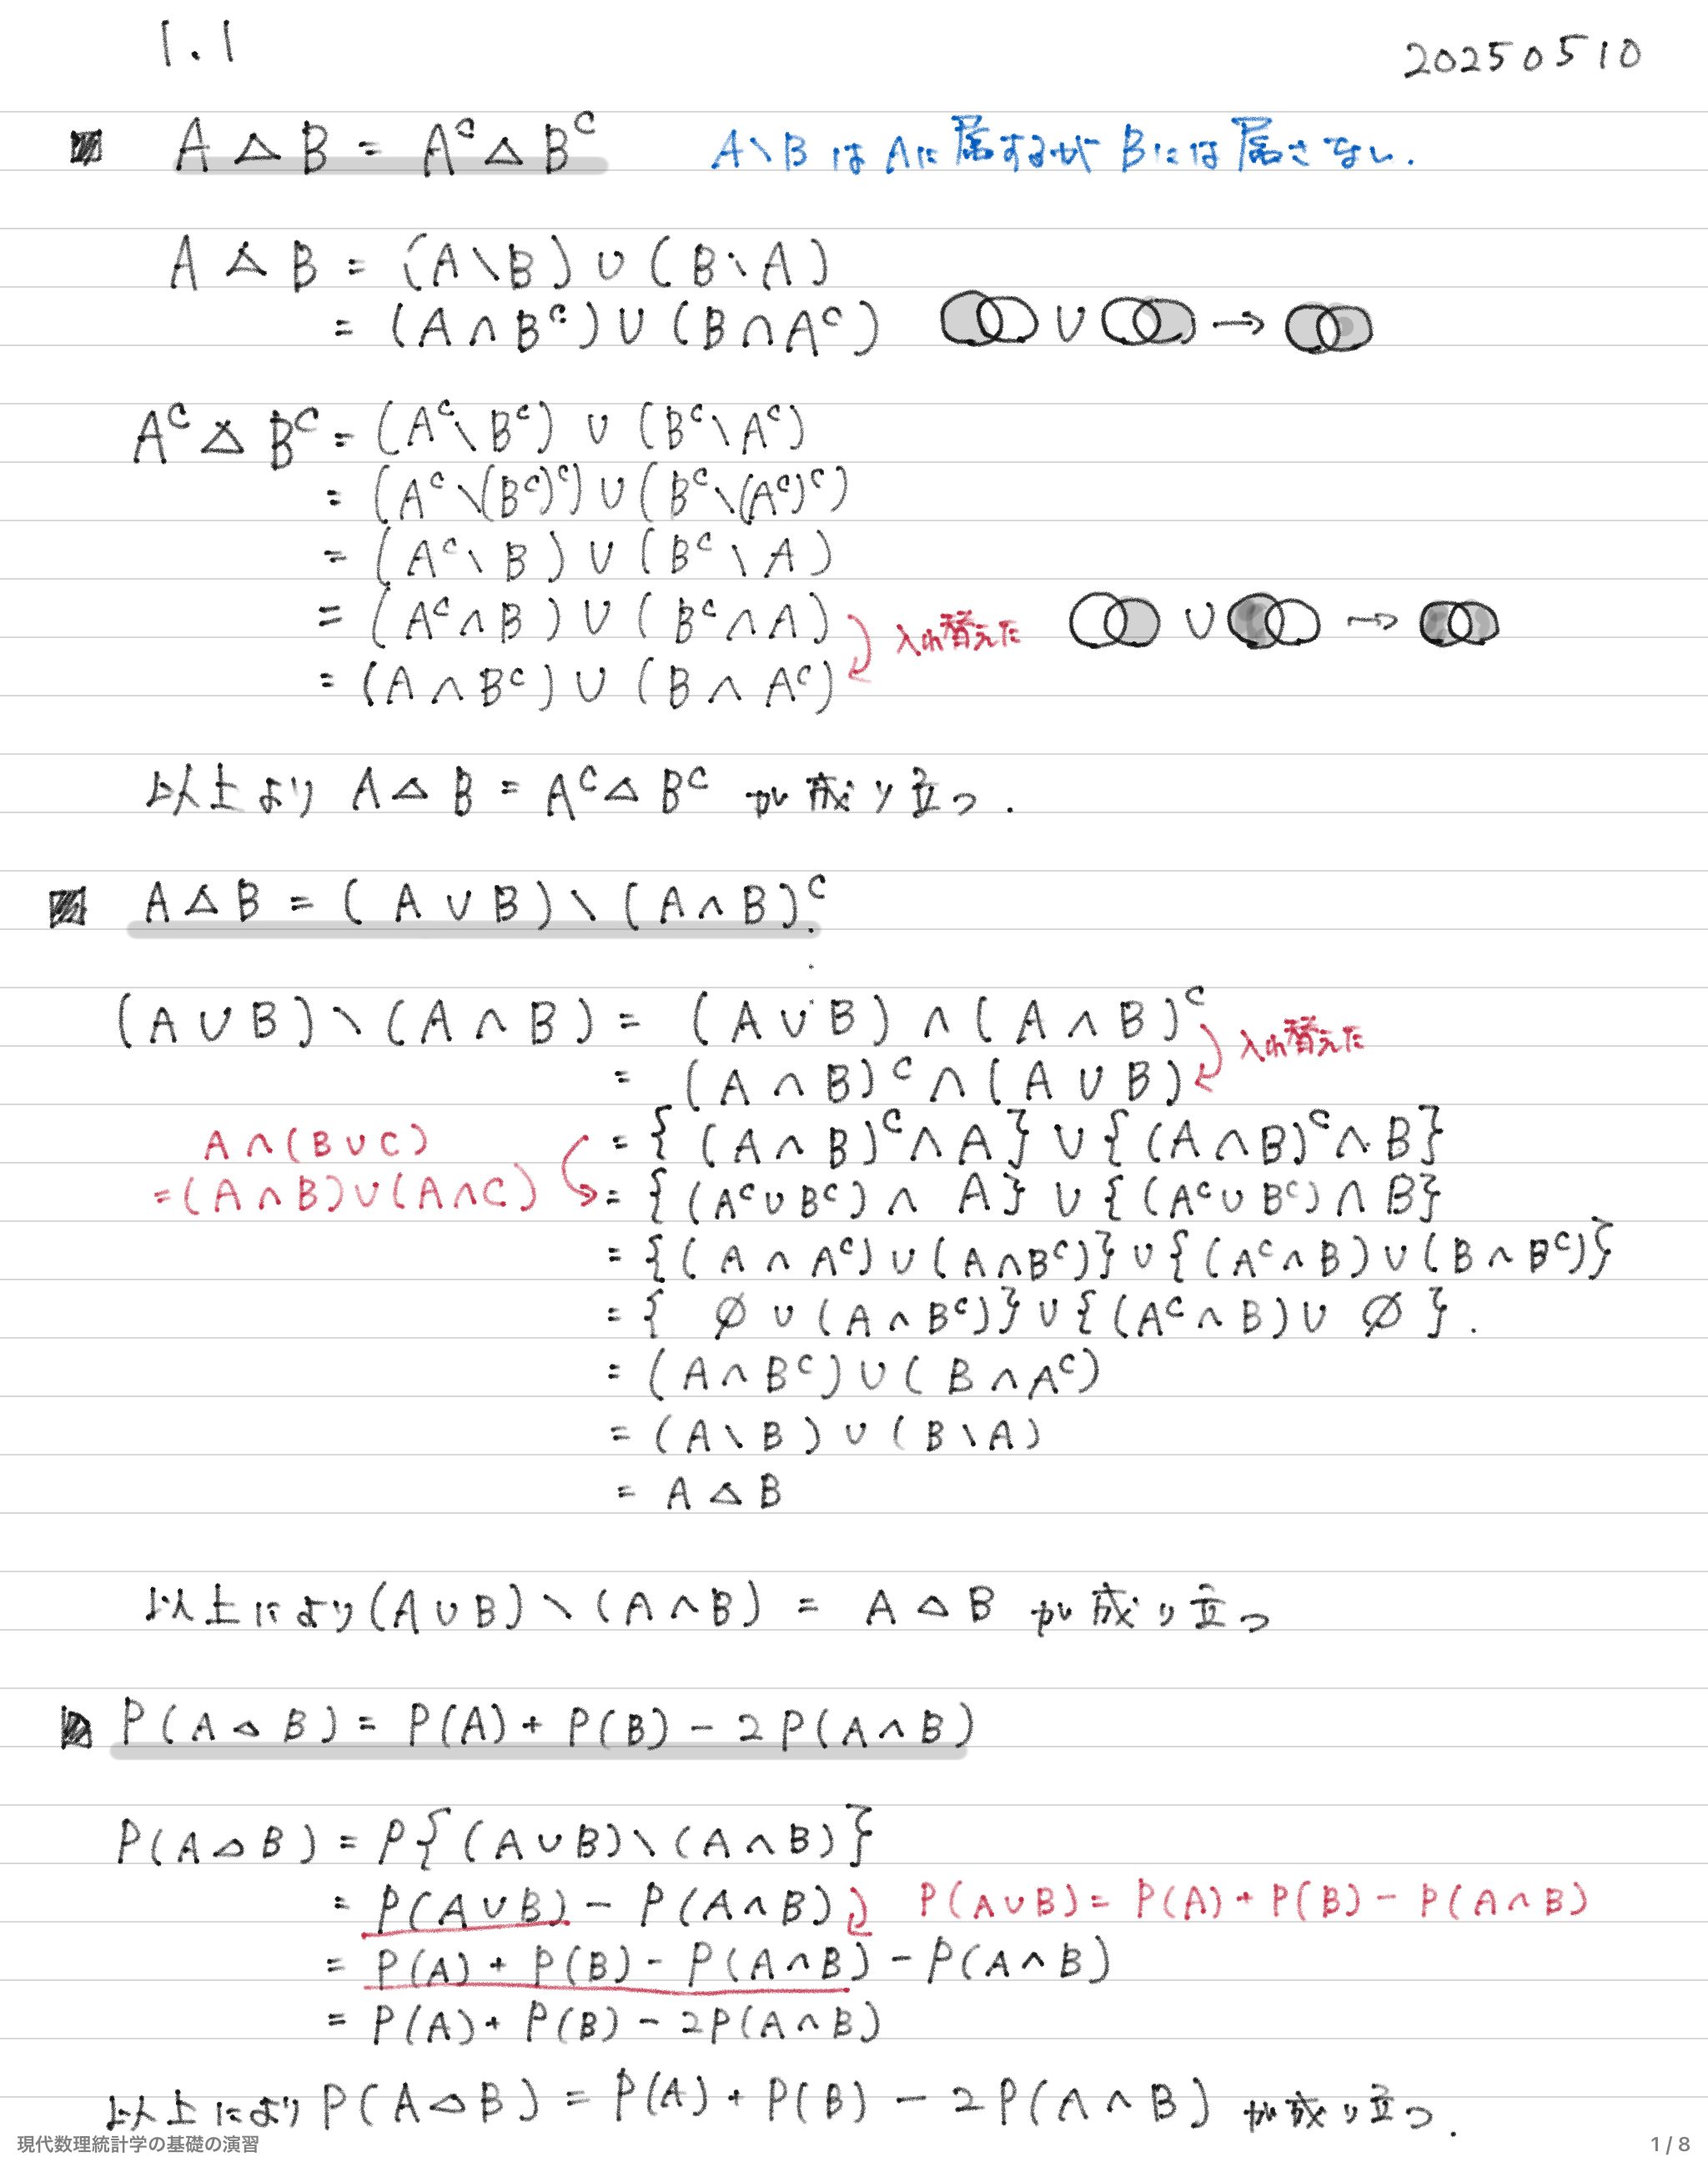 1.1
20250510
A △ B = Aᶜ △ Bᶜ
A \ B は Aに属するが Bには属さない.
A △ B = (A \ B) ∪ (B \ A)
= (A ∩ Bᶜ) ∪ (B ∩ Aᶜ) ∪ →
Aᶜ △ Bᶜ = (Aᶜ \ Bᶜ) ∪ (Bᶜ \ Aᶜ)
= (Aᶜ \ (Bᶜ)ᶜ) ∪ (Bᶜ \ (Aᶜ)ᶜ)
= (Aᶜ \ B) ∪ (Bᶜ \ A)
= (Aᶜ ∩ B) ∪ (Bᶜ ∩ A) 入れ替えた ∪ →
= (A ∩ Bᶜ) ∪ (B ∩ Aᶜ)
以上より A △ B = Aᶜ △ Bᶜ が成り立つ.
A △ B = (A ∪ B) \ (A ∩ B)ᶜ
(A ∪ B) \ (A ∩ B) = (A ∪ B) ∩ (A ∩ B)ᶜ
入れ替えた
= (A ∩ B)ᶜ ∩ (A ∪ B)
= {(A ∩ B)ᶜ ∩ A} ∪ {(A ∩ B)ᶜ ∩ B}
A ∩ (B ∪ C)
= (A ∩ B) ∪ (A ∩ C)
= {(Aᶜ ∪ Bᶜ) ∩ A} ∪ {(Aᶜ ∪ Bᶜ) ∩ B}
= {(A ∩ Aᶜ) ∪ (A ∩ Bᶜ)} ∪ {(Aᶜ ∩ B) ∪ (B ∩ Bᶜ)}
= {∅ ∪ (A ∩ Bᶜ)} ∪ {(Aᶜ ∩ B) ∪ ∅}.
= (A ∩ Bᶜ) ∪ (B ∩ Aᶜ)
= (A \ B) ∪ (B \ A)
= A △ B
以上により (A ∪ B) \ (A ∩ B) = A △ B が成り立つ
P(A △ B) = P(A) + P(B) - 2P(A ∩ B)
P(A △ B) = P{(A ∪ B) \ (A ∩ B)}
= P(A ∪ B) - P(A ∩ B) P(A ∪ B) = P(A) + P(B) - P(A ∩ B)
= P(A) + P(B) - P(A ∩ B) - P(A ∩ B)
= P(A) + P(B) - 2P(A ∩ B)
以上により P(A △ B) = P(A) + P(B) - 2P(A ∩ B) が成り立つ.
現代数理統計学の基礎の演習
1 / 8